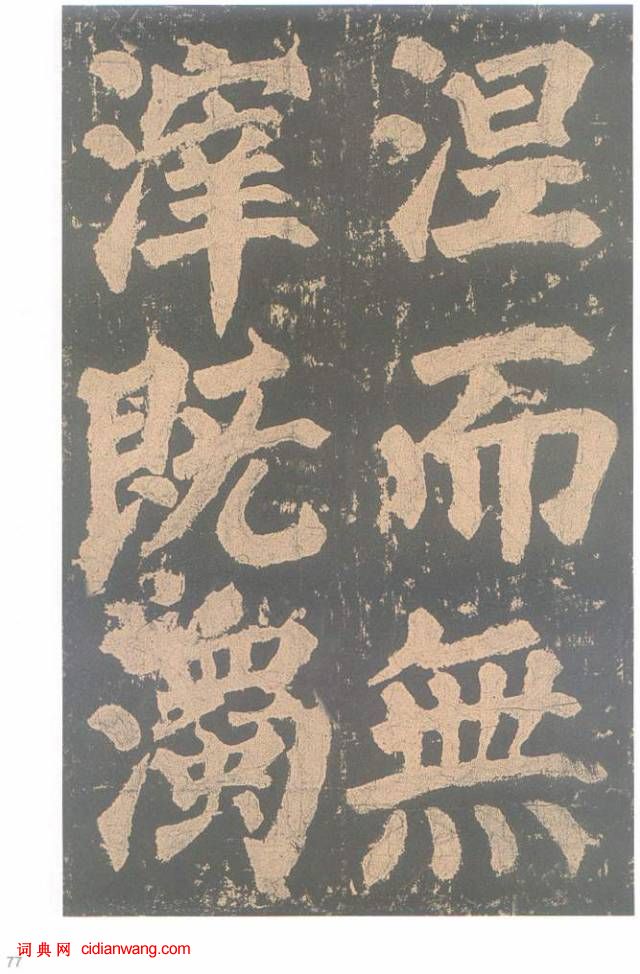 涅而無
滓既濁
词典网 cidianwang.com
77